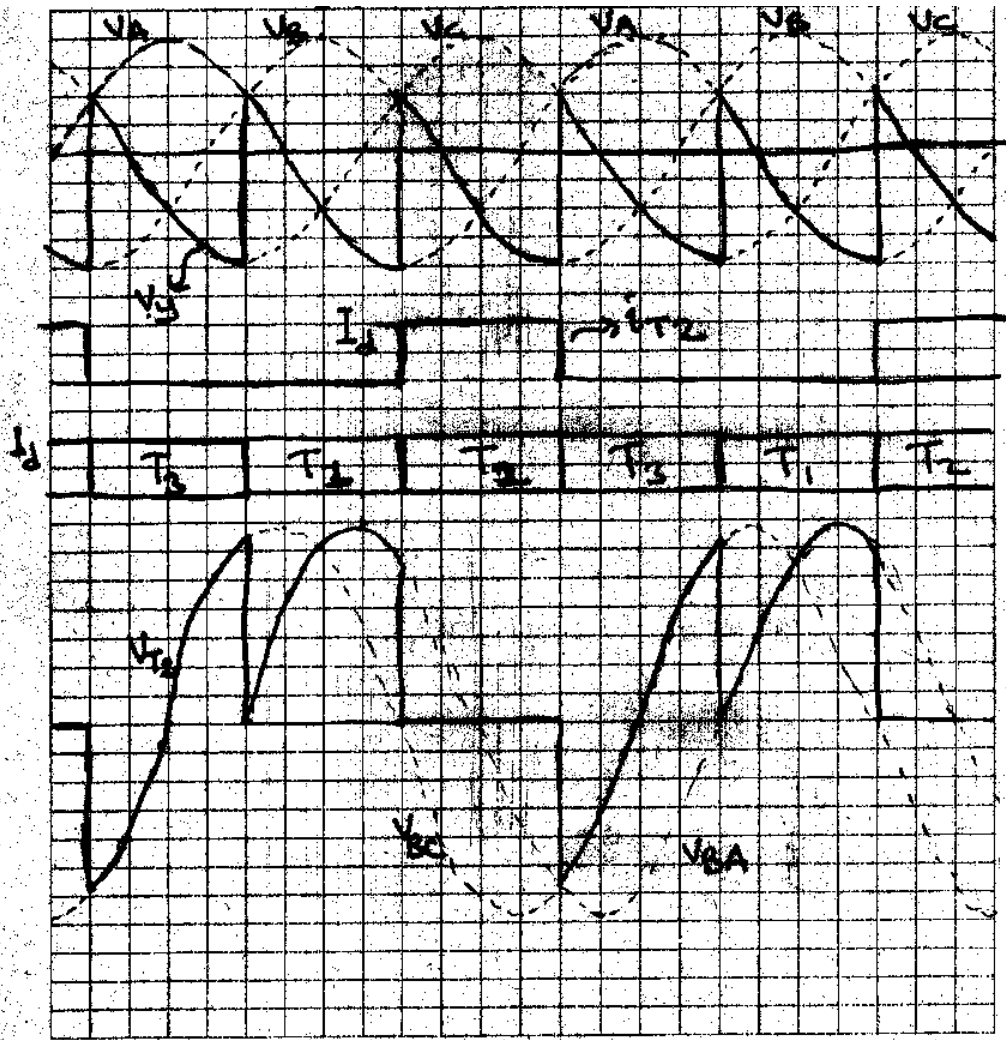 VA VB VC VA VB VC
Vy
Id iT2
Id T3 T1 T2 T3 T1 T2
VT2
VBC VBA